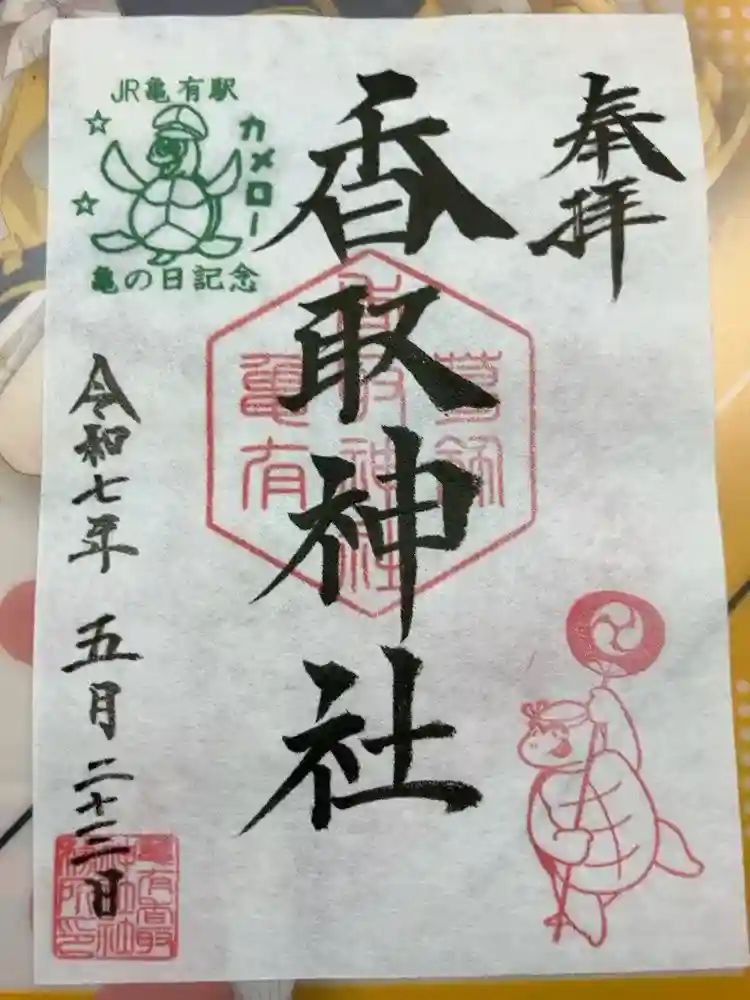 奉拝
香取神社
葛飾
香取神社
亀有
JR亀有駅
カメロー
亀の日記念
令和七年 五月二十三日